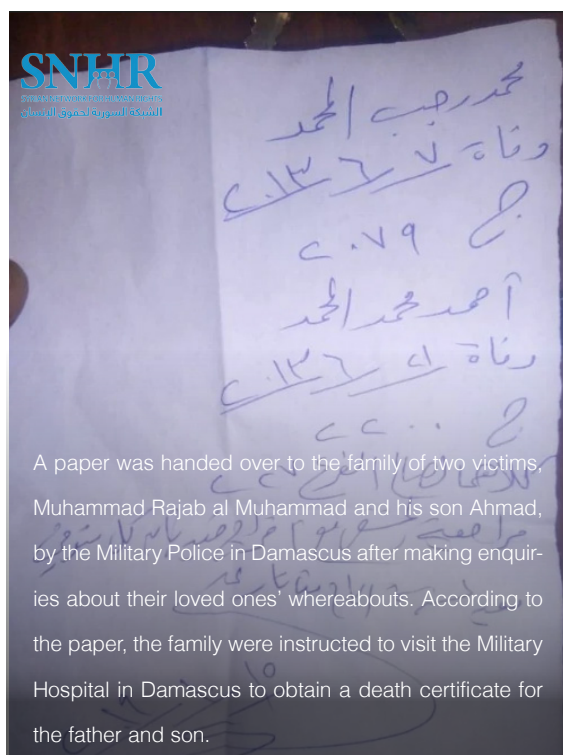 SNHR
SYRIAN NETWORK FOR HUMAN RIGHTS
الشبكة السورية لحقوق الإنسان
محمد رجب المحمد
وفاة ٧ / ٦ / ٢٠١٣
ج ٢٠٧٩
أحمد محمد المحمد
وفاة ٢١ / ٦ / ٢٠١٣
ج ٢٢٠٠
A paper was handed over to the family of two victims,
Muhammad Rajab al Muhammad and his son Ahmad,
by the Military Police in Damascus after making enquir-
ies about their loved ones’ whereabouts. According to
the paper, the family were instructed to visit the Military
Hospital in Damascus to obtain a death certificate for
the father and son.